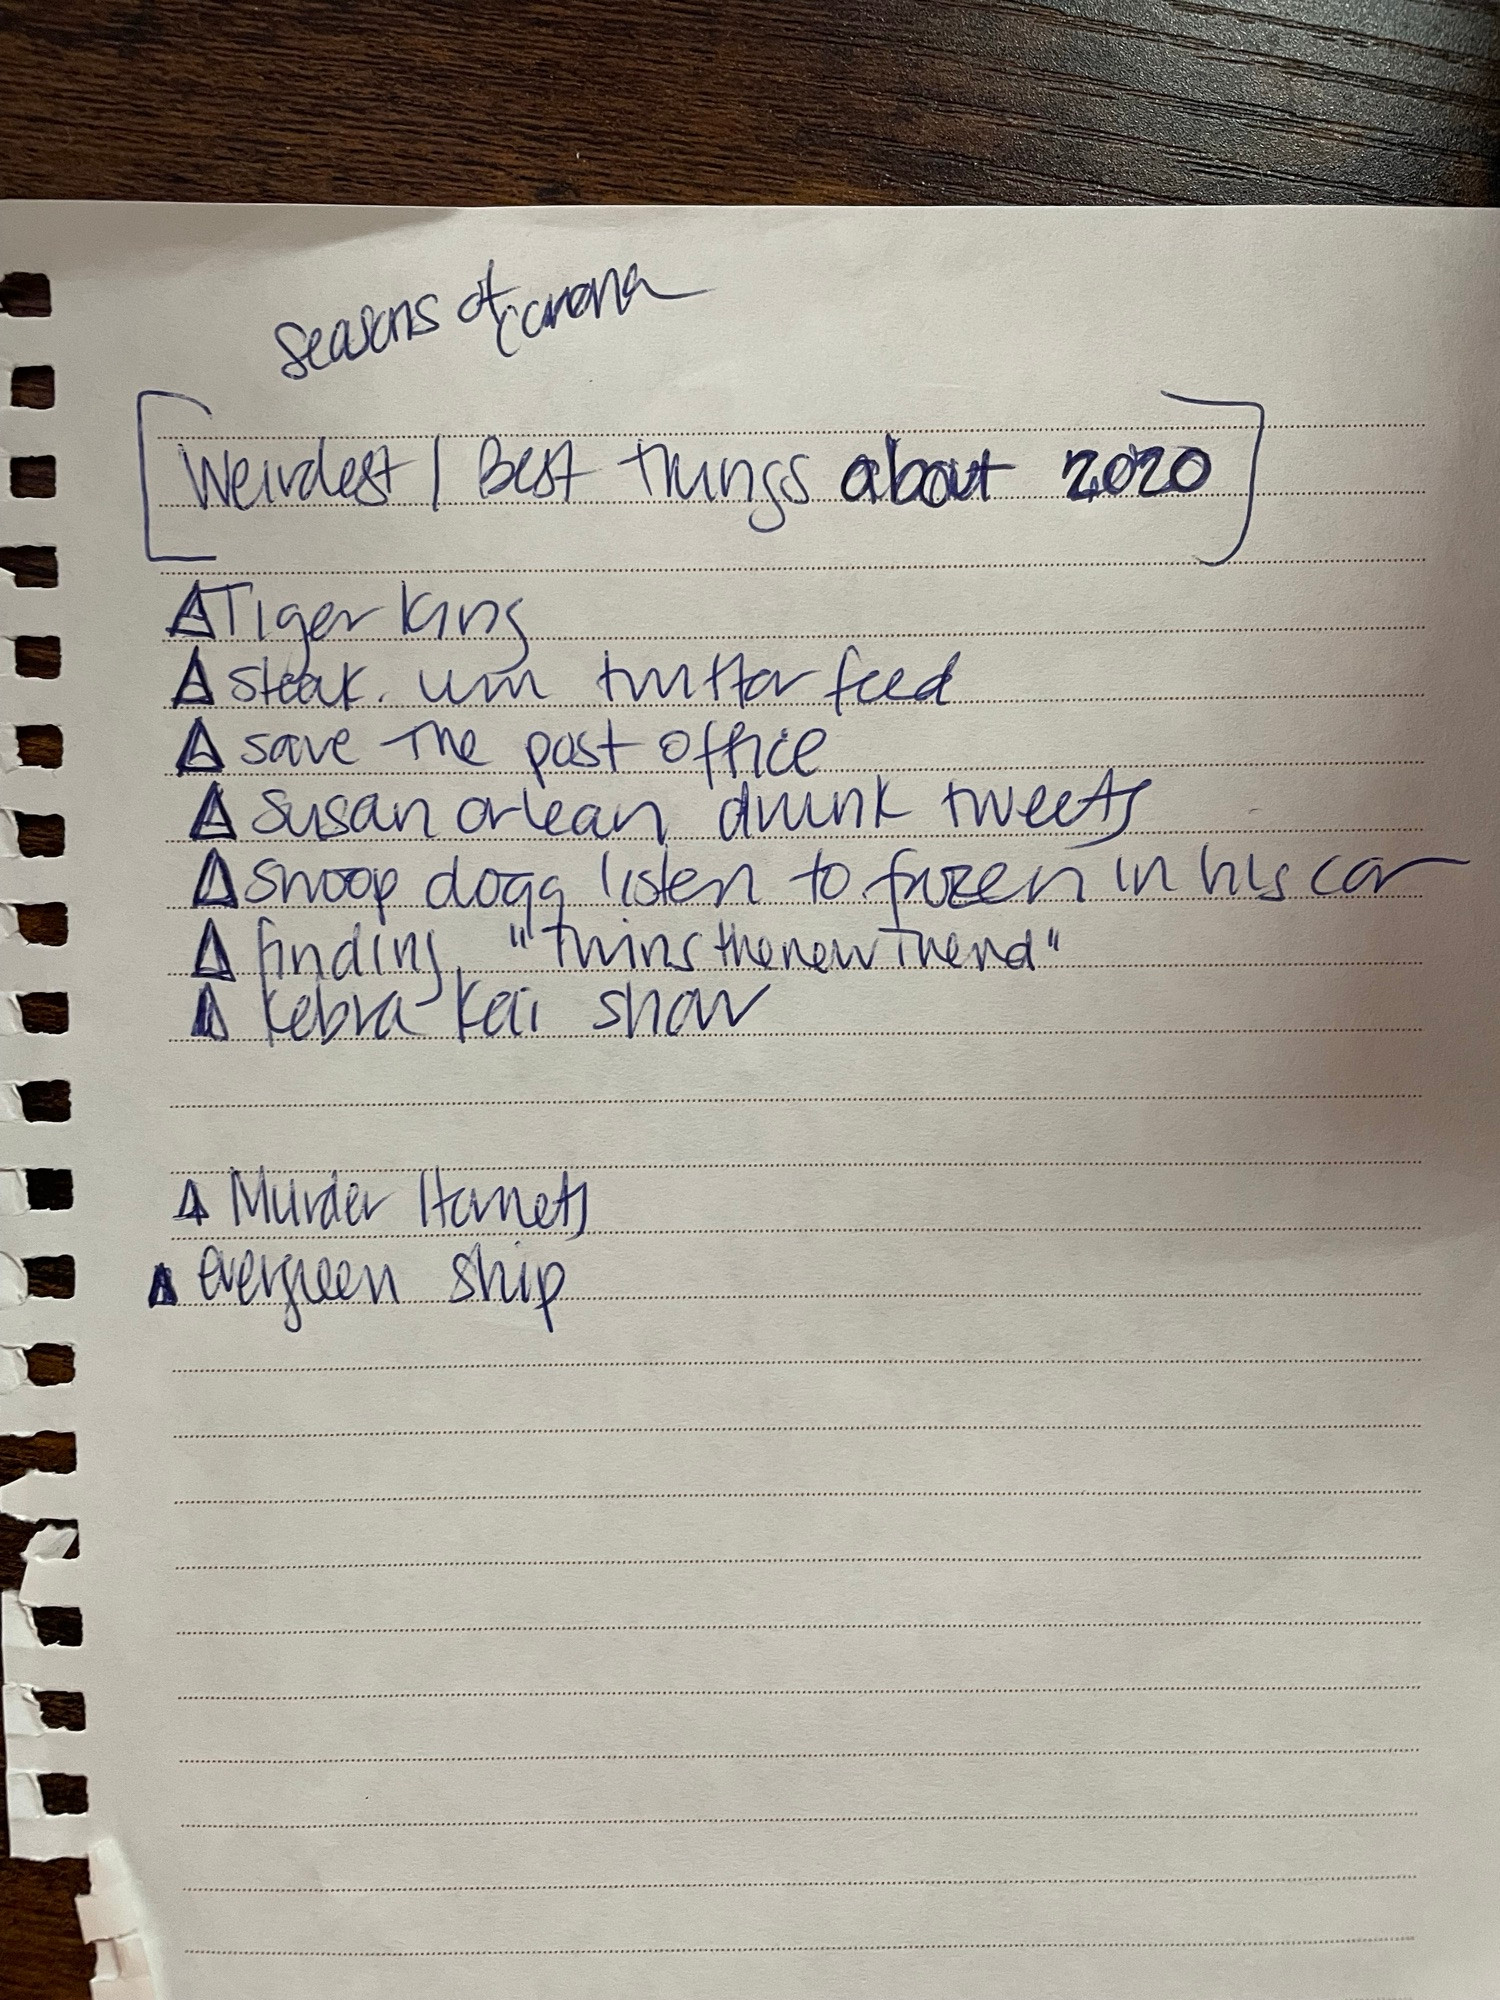 seasons of corona
Weirdest / Best things about 2020
Tiger King
steak.umm twitter feed
save the post office
Susan orlean drunk tweets
snoop dogg listen to frozen in his car
finding "twinsthenewtrend"
Kebra Kai show
Murder Hornets
evergreen ship